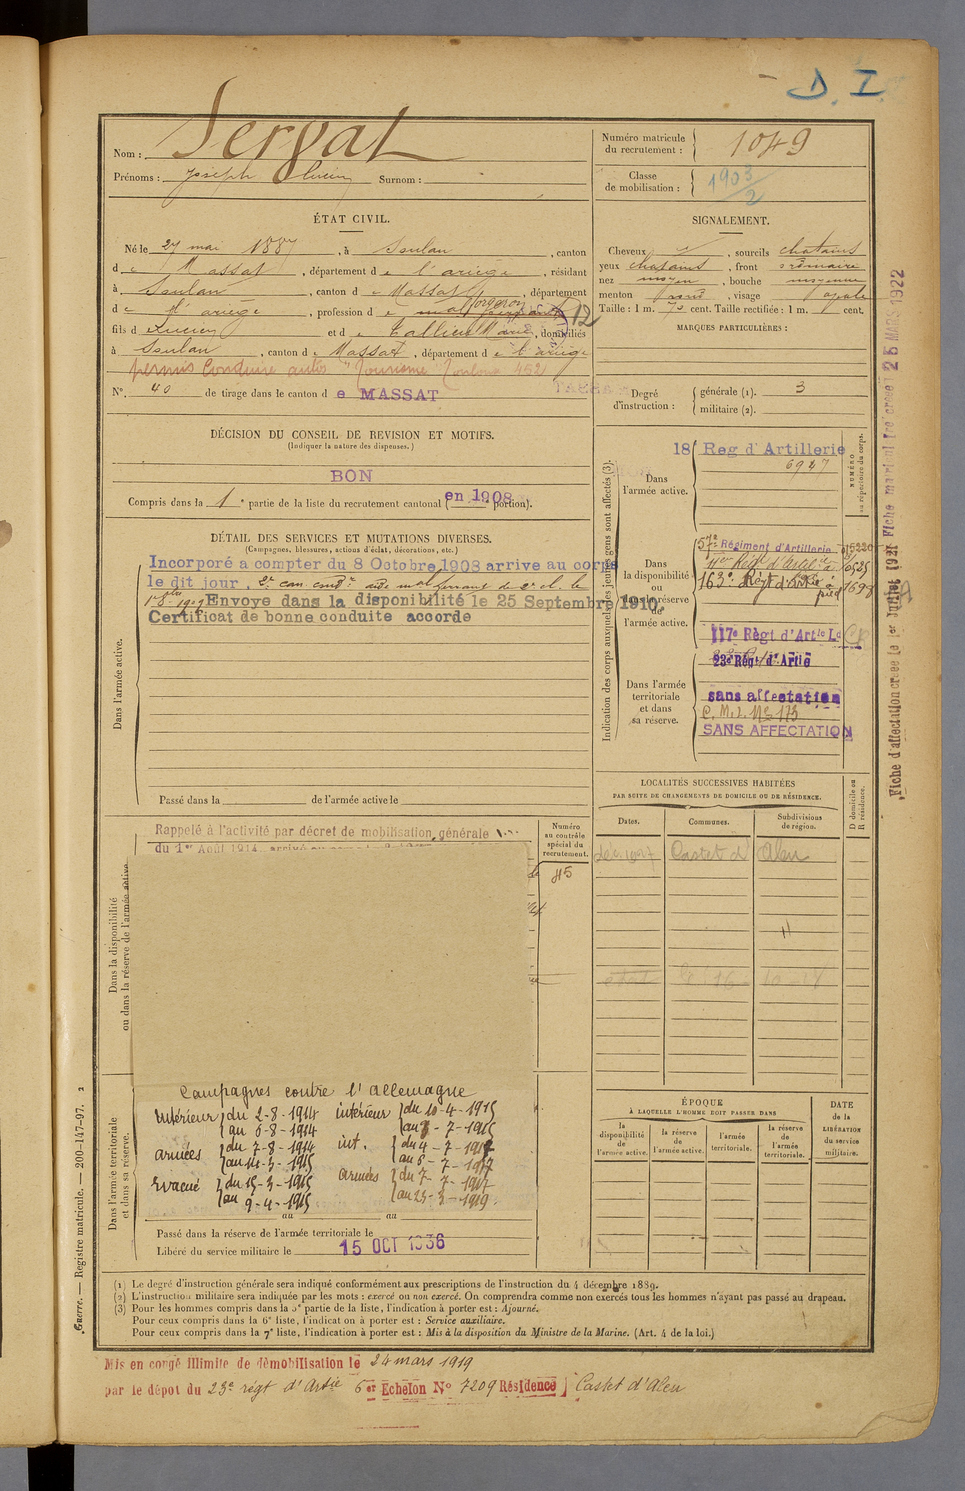 D. I.
Nom : Sergat
Prénoms : Joseph Surnom :
Numéro matricule du recrutement : 1049
Classe de mobilisation : 1903/2
ÉTAT CIVIL.
Né le 27 mai 1887, à Soulan, canton
de Massat, département de l'ariège, résidant
à Soulan, canton de Massat, département
de l'ariège, profession de forgeron 12
fils d et de Marie, domiciliés
à Soulan, canton de Massat, département de l'ariège
permis Conduire autos "Tourisme" Toulouse 452
N° 40 de tirage dans le canton de MASSAT
SIGNALEMENT.
Cheveux , sourcils chatains
yeux chatains, front ordinaire
nez moyen, bouche moyenne
menton rond, visage ovale
Taille : 1 m. 70 cent. Taille rectifiée : 1 m. cent.
MARQUES PARTICULIÈRES :
Degré d'instruction : générale (1). 3
militaire (2).
DÉCISION DU CONSEIL DE REVISION ET MOTIFS.
(Indiquer la nature des dispenses.)
BON
Compris dans la 1e partie de la liste du recrutement cantonal (en 1908 portion).
DÉTAIL DES SERVICES ET MUTATIONS DIVERSES.
(Campagnes, blessures, actions d'éclat, décorations, etc.)
Incorporé a compter du 8 Octobre 1908 arrive au corps
le dit jour, 2e can. condr
Envoye dans la disponibilité le 25 Septembre 1910.
Certificat de bonne conduite accorde
Dans l'armée active.
Passé dans la de l'armée active le
Indication des corps auxquels les jeunes gens sont affectés (3).
NUMÉRO au répertoire du corps.
Dans l'armée active.
18 Reg d'Artillerie
6927
Dans la disponibilité ou dans la réserve de l'armée active.
57e Régiment d'Artillerie
163e Régt d'Artie à pied
117e Règt d'Artie Lde
Dans l'armée territoriale et dans sa réserve.
23e Régt d'Artie
sans affectation
C. M. I. No 173
SANS AFFECTATION
Fiche d'affectation creee le 1er Juillet 1921 Fiche matricule creee l 25 MARS 1922
LOCALITÉS SUCCESSIVES HABITÉES
PAR SUITE DE CHANGEMENTS DE DOMICILE OU DE RÉSIDENCE.
Dates. Communes. Subdivisions de région. D domicile ou R résidence.
dec. 1927 Castet d'Aleu
Rappelé à l'activité par décret de mobilisation générale
du 1er Août 1914
Numéro au contrôle spécial du recrutement.
Dans la disponibilité ou dans la réserve de l'armée active
Campagnes contre l'Allemagne
Intérieur du 2-8-1914
au 6-8-1914
armées du 7-8-1914
au 14-3-1915
Evacué du 15-3-1915
au 9-4-1915
intérieur du 10-4-1915
au 3-7-1915
int. du 4-7-1917
au 6-7-1917
armées du 7-7-1917
au 23-3-1919.
Dans l'armée territoriale et dans sa réserve.
au au
Passé dans la réserve de l'armée territoriale le
Libéré du service militaire le 15 OCT 1936
ÉPOQUE
À LAQUELLE L'HOMME DOIT PASSER DANS
la disponibilité de l'armée active.
la réserve de l'armée active.
l'armée territoriale.
la réserve de l'armée territoriale.
DATE de la LIBÉRATION du service militaire.
Guerre. — Registre matricule. — 200-147-97. 2
(1) Le degré d'instruction générale sera indiqué conformément aux prescriptions de l'instruction du 4 décembre 1889.
(2) L'instruction militaire sera indiquée par les mots : exercé ou non exercé. On comprendra comme non exercés tous les hommes n'ayant pas passé au drapeau.
(3) Pour les hommes compris dans la 5e partie de la liste, l'indication à porter est : Ajourné.
Pour ceux compris dans la 6e liste, l'indication à porter est : Service auxiliaire.
Pour ceux compris dans la 7e liste, l'indication à porter est : Mis à la disposition du Ministre de la Marine. (Art. 4 de la loi.)
Mis en congé illimite de démobilisation le 24 mars 1919
par le dépot du 23e régt d'Artie 6 er Echelon No 7209 Résidence Castet d'Aleu